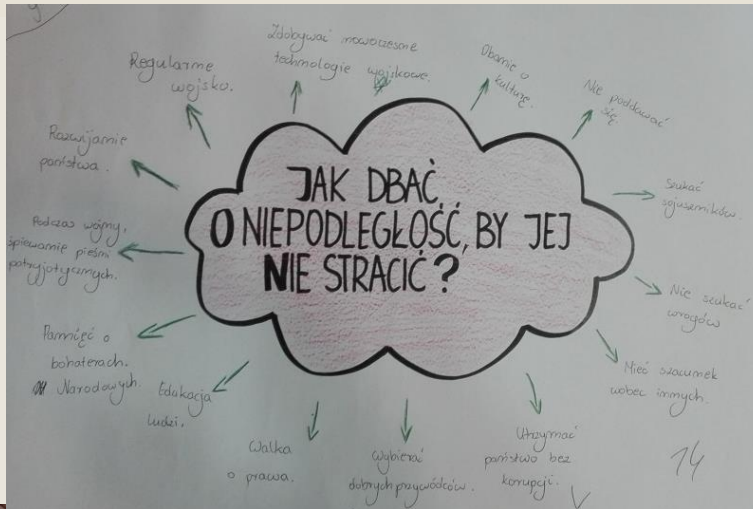 JAK DBAĆ
O NIEPODLEGŁOŚĆ, BY JEJ
NIE STRACIĆ?
Zdobywać nowoczesne
technologie wojskowe.
Dbanie o
kulturę.
Nie poddawać
się.
Szukać
sojuszników.
Nie szukać
wrogów
Mieć szacunek
wobec innych.
Utrzymać
państwo bez
korupcji.
Wybierać
dobrych przywódców.
Walka
o prawa.
Edukacja
ludzi.
Pamięć o
bohaterach.
Narodowych.
Podczas wojny,
śpiewanie pieśni
patryjotycznych.
Rozwijanie
państwa.
Regularne
wojsko.
14